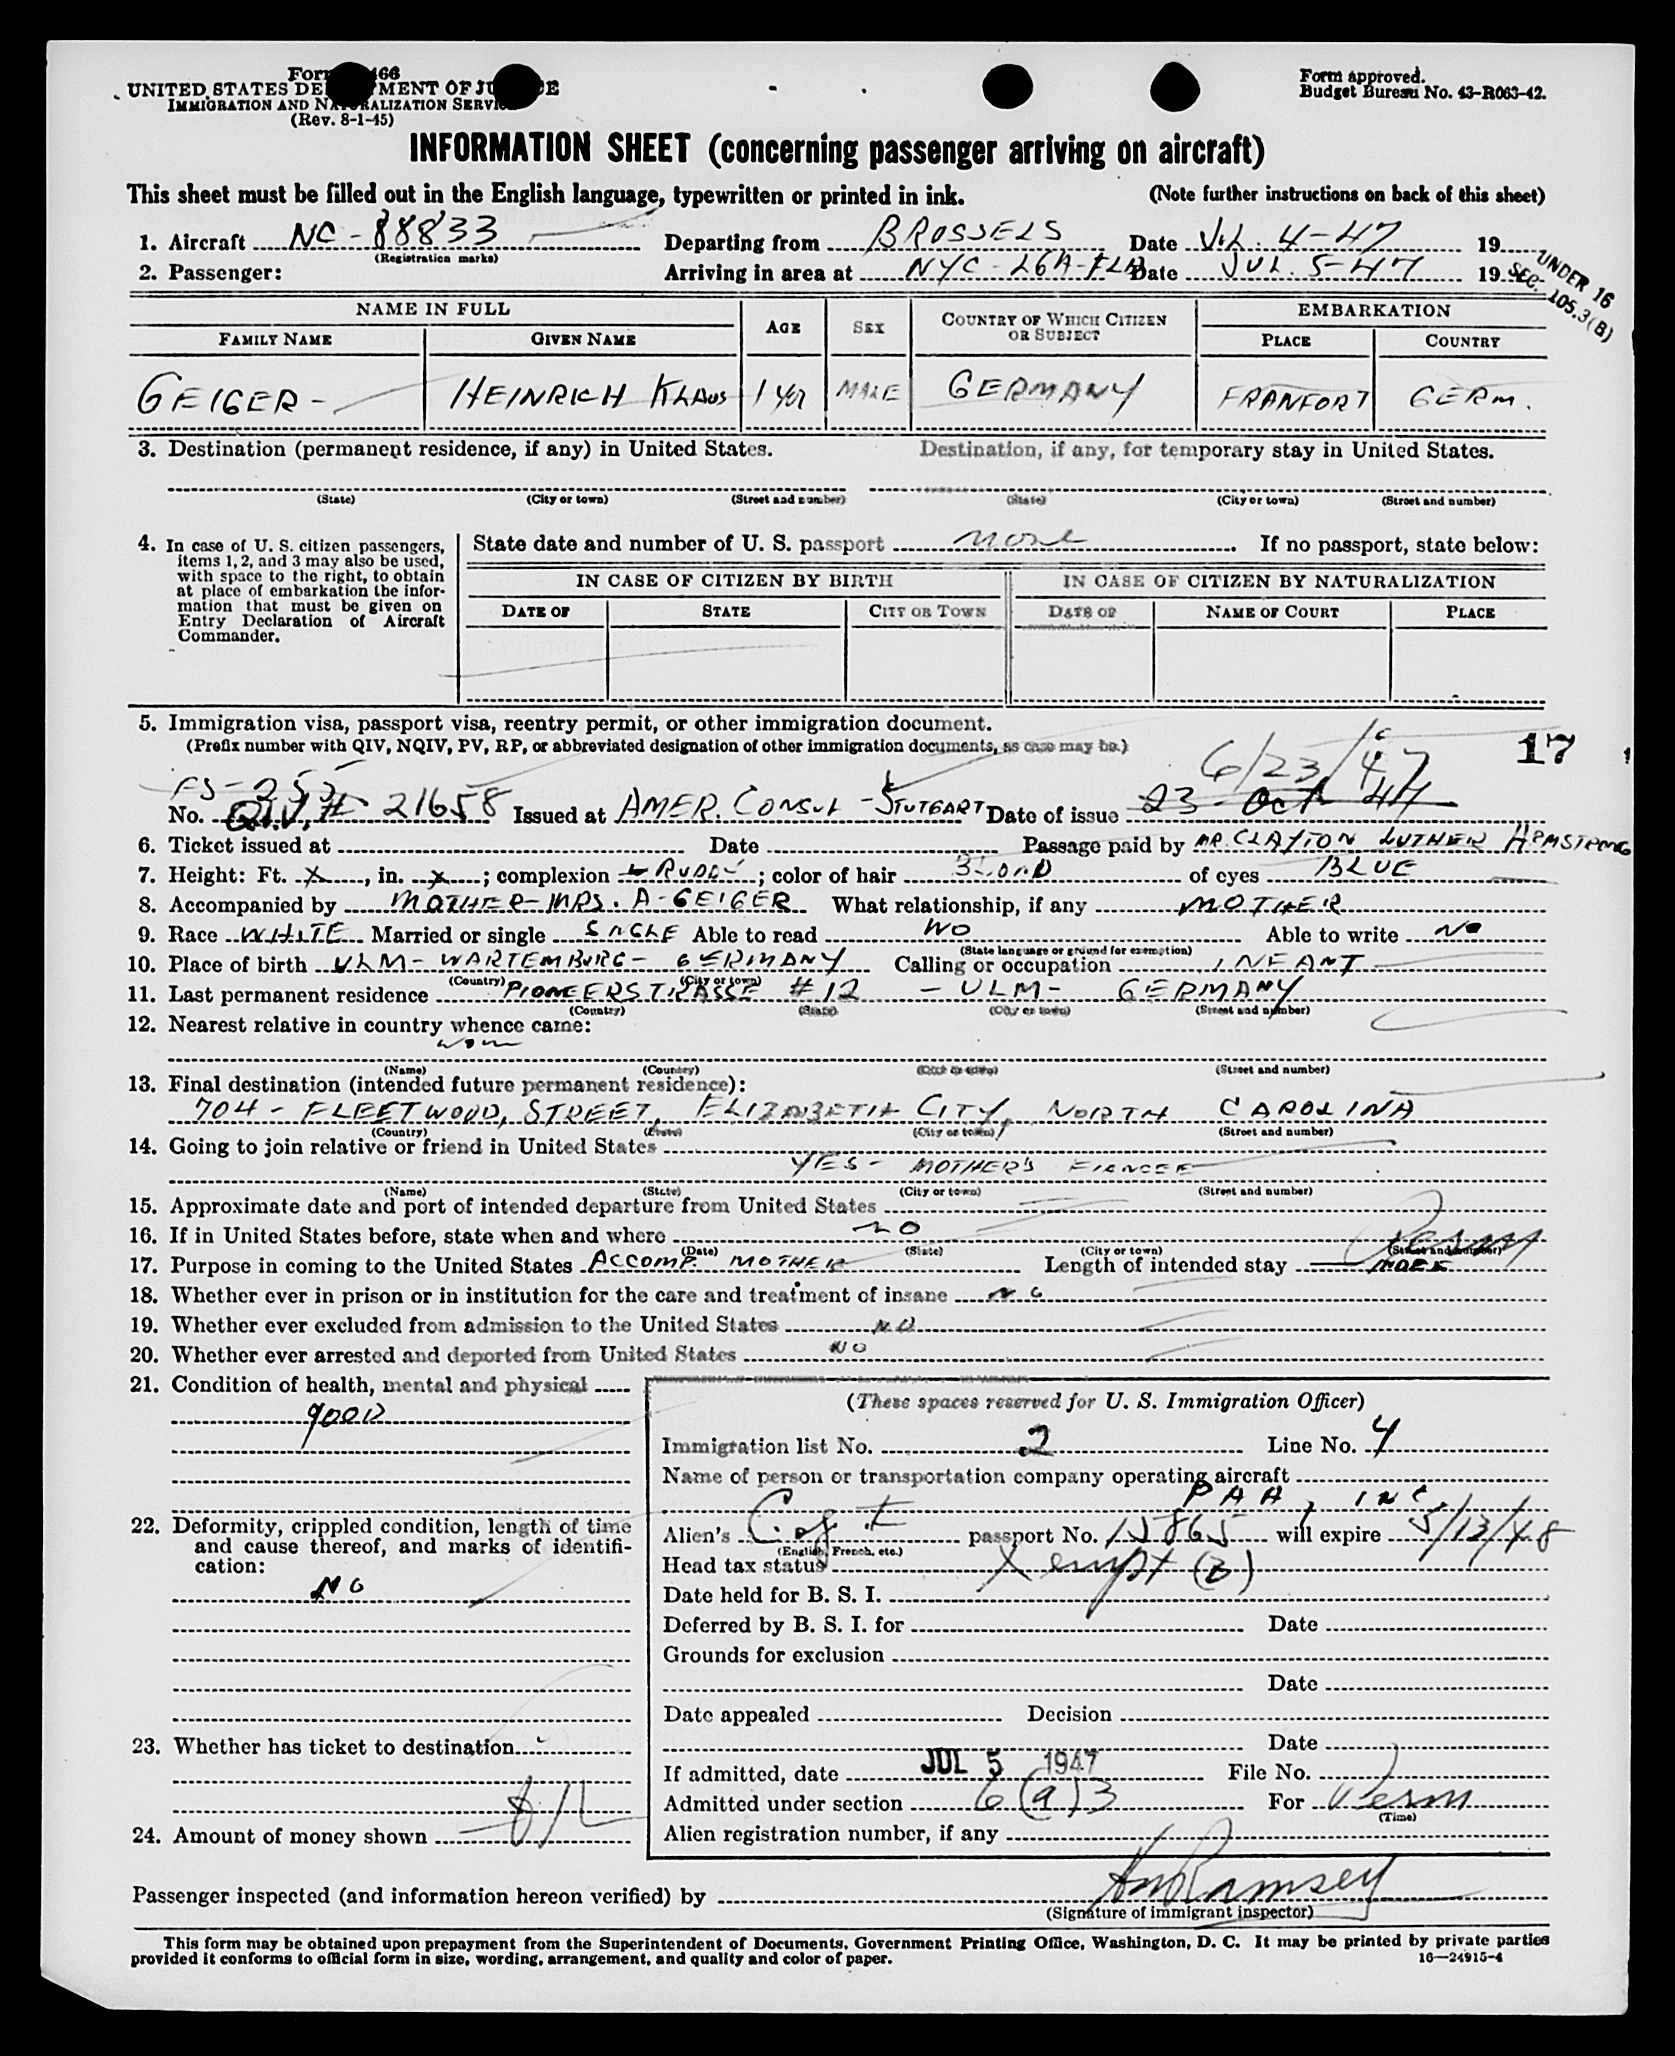 UNITED STATES DEPARTMENT OF JUSTICE
IMMIGRATION AND NATURALIZATION SERVICE
(Rev. 8-1-45)
Form approved.
Budget Bureau No. 43-R063-42.
INFORMATION SHEET (concerning passenger arriving on aircraft)
This sheet must be filled out in the English language, typewritten or printed in ink. (Note further instructions on back of this sheet)
1. Aircraft NC-88833 Departing from BRUSSELS Date JUL. 4-47 19
(Registration marks)
2. Passenger: Arriving in area at NYC-LGA-FLD Date JUL. 5-47 19
UNDER 16
SEC. 105.3(B)
NAME IN FULL AGE SEX COUNTRY OF WHICH CITIZEN OR SUBJECT EMBARKATION
FAMILY NAME GIVEN NAME PLACE COUNTRY
GEIGER- HEINRICH KLAUS 1 YR MALE GERMANY FRANFORT GERM.
3. Destination (permanent residence, if any) in United States. Destination, if any, for temporary stay in United States.
(State) (City or town) (Street and number) (State) (City or town) (Street and number)
4. In case of U. S. citizen passengers, items 1, 2, and 3 may also be used, with space to the right, to obtain at place of embarkation the information that must be given on Entry Declaration of Aircraft Commander.
State date and number of U. S. passport none. If no passport, state below:
IN CASE OF CITIZEN BY BIRTH IN CASE OF CITIZEN BY NATURALIZATION
DATE OF STATE CITY OR TOWN DATE OF NAME OF COURT PLACE
5. Immigration visa, passport visa, reentry permit, or other immigration document.
(Prefix number with QIV, NQIV, PV, RP, or abbreviated designation of other immigration documents, as case may be.)
17
FS-255 6/23/47
No. Q.I.V.# 21658 Issued at AMER. CONSUL-STUTGART Date of issue 23 Oct 44
6. Ticket issued at Date Passage paid by MR. CLAYTON LUTHER ARMSTRONG
7. Height: Ft. X, in. X; complexion RUDDY; color of hair BLOND of eyes BLUE
8. Accompanied by MOTHER-MRS. A-GEIGER What relationship, if any MOTHER
9. Race WHITE Married or single SINGLE Able to read NO Able to write NO
(State language or ground for exemption)
10. Place of birth ULM-WARTEMBURG-GERMANY Calling or occupation INFANT
(Country) (City or town)
11. Last permanent residence PIONEERSTRASSE #12 - ULM - GERMANY
(Country) (State) (City or town) (Street and number)
12. Nearest relative in country whence came:
(Name) (Country) (City or town) (Street and number)
13. Final destination (intended future permanent residence):
704-FLEETWOOD, STREET, ELIZABETH CITY, NORTH CAROLINA
(Country) (State) (City or town) (Street and number)
14. Going to join relative or friend in United States
YES- MOTHER'S FIANCEE
(Name) (State) (City or town) (Street and number)
15. Approximate date and port of intended departure from United States
16. If in United States before, state when and where NO
(Date) (State) (City or town) (Street and number)
17. Purpose in coming to the United States ACCOMP. MOTHER Length of intended stay Perm
18. Whether ever in prison or in institution for the care and treatment of insane NO
19. Whether ever excluded from admission to the United States NO
20. Whether ever arrested and deported from United States NO
21. Condition of health, mental and physical
GOOD
22. Deformity, crippled condition, length of time and cause thereof, and marks of identification:
NO
23. Whether has ticket to destination
24. Amount of money shown
(These spaces reserved for U. S. Immigration Officer)
Immigration list No. 2 Line No. 4
Name of person or transportation company operating aircraft
PAA, INC.
Alien's C. of I. passport No. 15865 will expire 5/13/48
(English, French, etc.)
Head tax status Xempt (3)
Date held for B. S. I.
Deferred by B. S. I. for Date
Grounds for exclusion
Date
Date appealed Decision
Date
If admitted, date JUL 5 1947 File No.
Admitted under section 6(a)3 For Perm
(Time)
Alien registration number, if any
Passenger inspected (and information hereon verified) by Ramsey
(Signature of immigrant inspector)
This form may be obtained upon prepayment from the Superintendent of Documents, Government Printing Office, Washington, D. C. It may be printed by private parties
provided it conforms to official form in size, wording, arrangement, and quality and color of paper. 16—24915-4